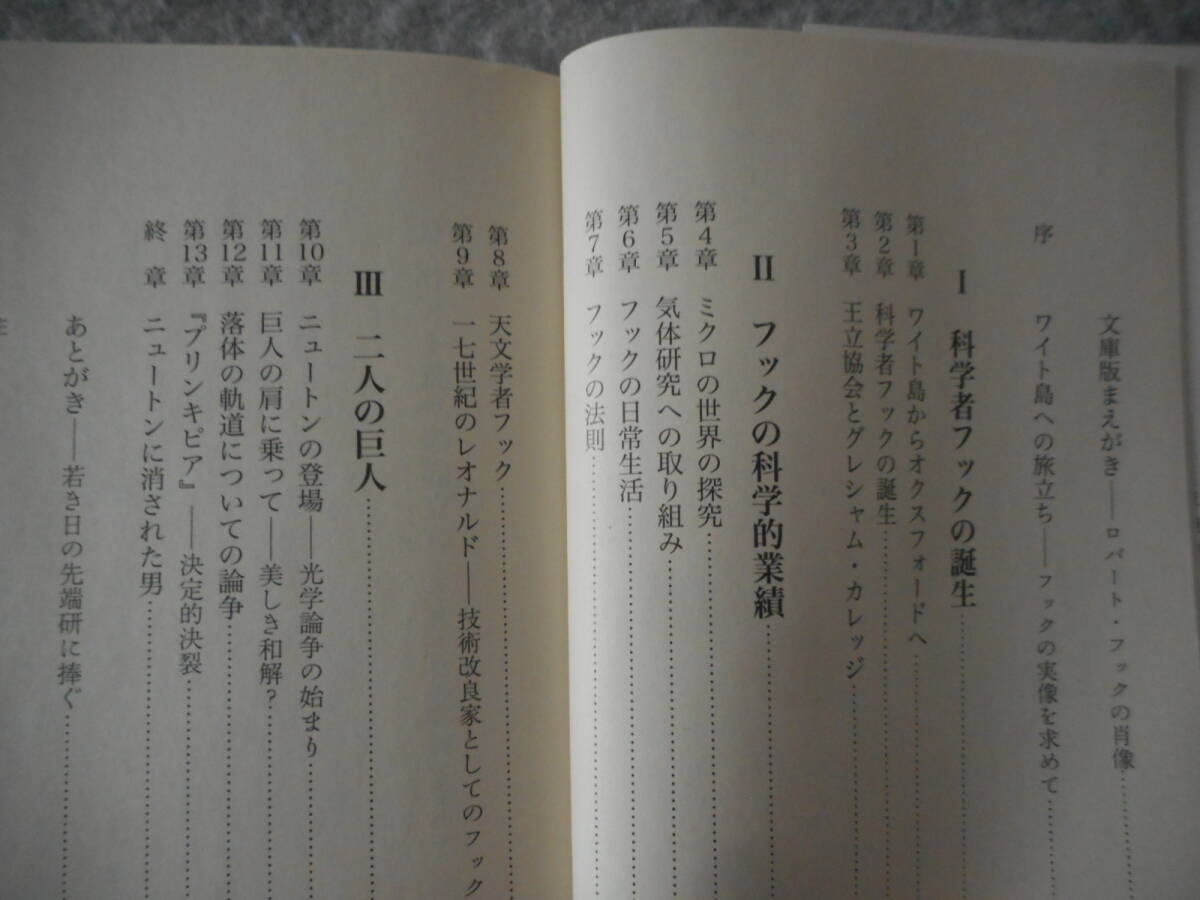 文庫版まえがき――ロバート・フックの肖像
序 ワイト島への旅立ち――フックの実像を求めて
Ⅰ 科学者フックの誕生
第1章 ワイト島からオクスフォードへ
第2章 科学者フックの誕生
第3章 王立協会とグレシャム・カレッジ
Ⅱ フックの科学的業績
第4章 ミクロの世界の探究
第5章 気体研究への取り組み
第6章 フックの日常生活
第7章 フックの法則
第8章 天文学者フック
第9章 一七世紀のレオナルド――技術改良家としてのフック
Ⅲ 二人の巨人
第10章 ニュートンの登場――光学論争の始まり
第11章 巨人の肩に乗って――美しき和解?
第12章 落体の軌道についての論争
第13章 『プリンキピア』――決定的決裂
終章 ニュートンに消された男
あとがき――若き日の先端研に捧ぐ